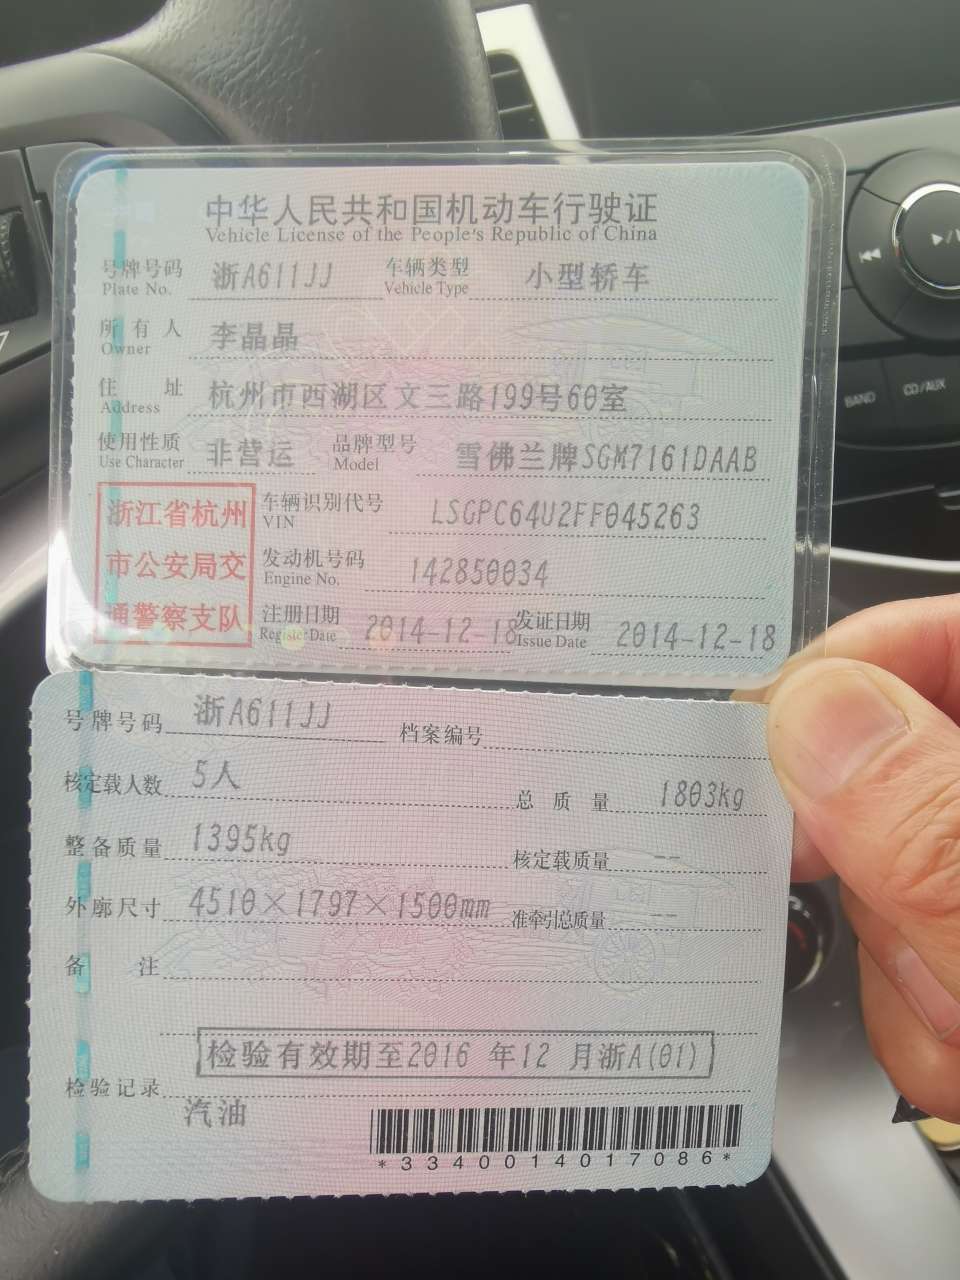 中华人民共和国机动车行驶证
Vehicle License of the People's Republic of China
号牌号码 浙A611JJ 车辆类型 小型轿车
Plate No. Vehicle Type
所有人 李晶晶
Owner
住址 杭州市西湖区文三路199号60室
Address
使用性质 非营运 品牌型号 雪佛兰牌SGM7161DAAB
Use Character Model
浙江省杭州
市公安局交
通警察支队
车辆识别代号 LSGPC64U2FF045263
VIN
发动机号码 142850034
Engine No.
注册日期 2014-12-18 发证日期 2014-12-18
Register Date Issue Date
号牌号码 浙A611JJ 档案编号
核定载人数 5人 总质量 1803kg
整备质量 1395kg 核定载质量 --
外廓尺寸 4510×1797×1500mm 准牵引总质量 --
备注
检验有效期至2016 年12 月浙A(01)
检验记录
汽油
*3340014017086*
BAND
CD/AUX